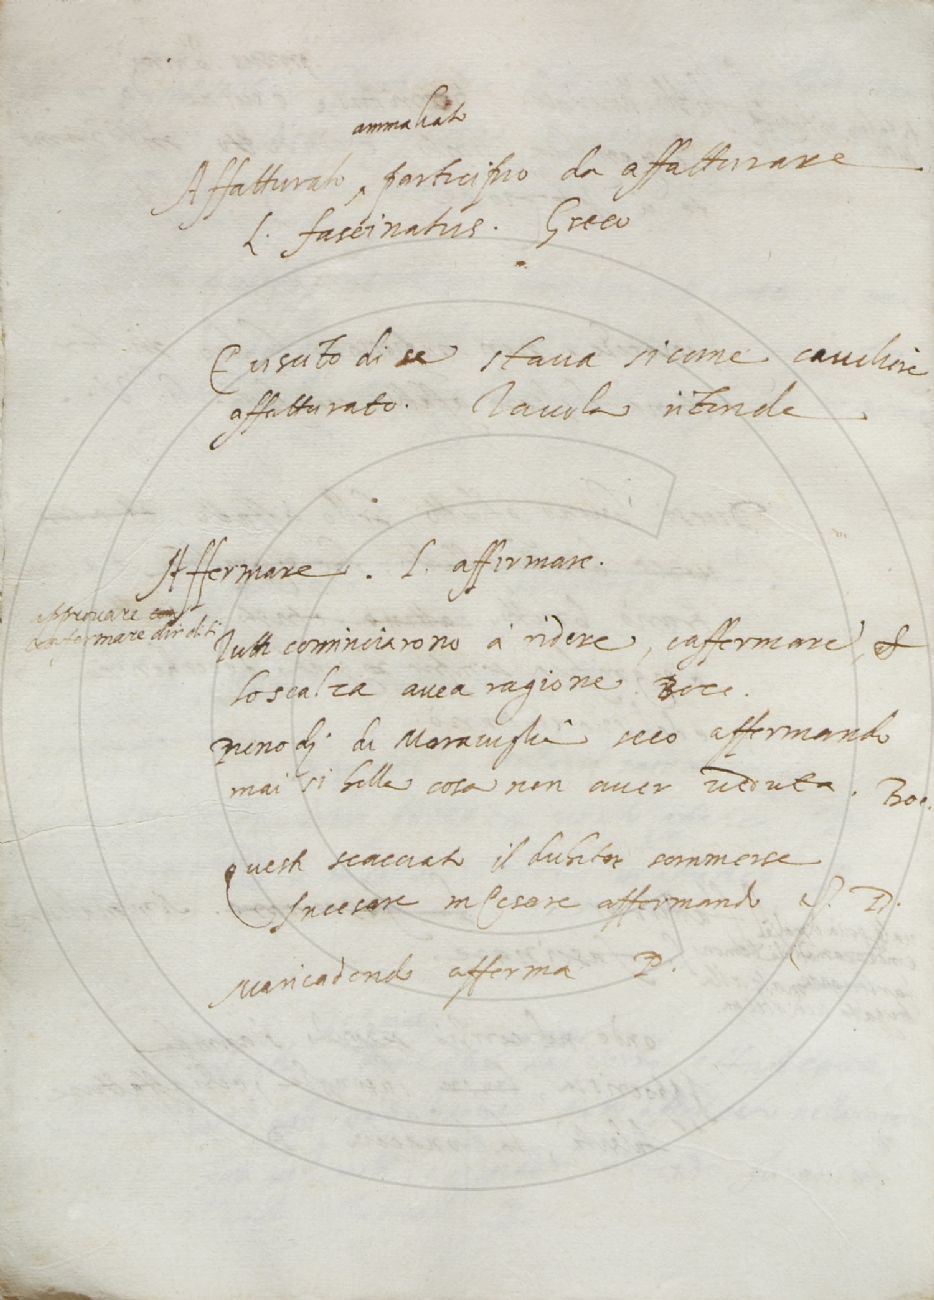 ammaliato
Affatturato, participio da affatturare
L. fascinatus. Greco
E uscito di se stava sicome cavaliere
affatturato. Tavola ritonda
Affermare. L. affirmare.
approvare
confermare dir di si
Tutti cominciarono à ridere, e affermare, che
lo scalza avea ragione Bocc.
pieno di di Maraviglia seco affermando
mai si bella cosa non aver veduta. Boc.
Questi scacciato il dubitar sommerse
In Cesare affermando D.
ma ricadendo afferma P.